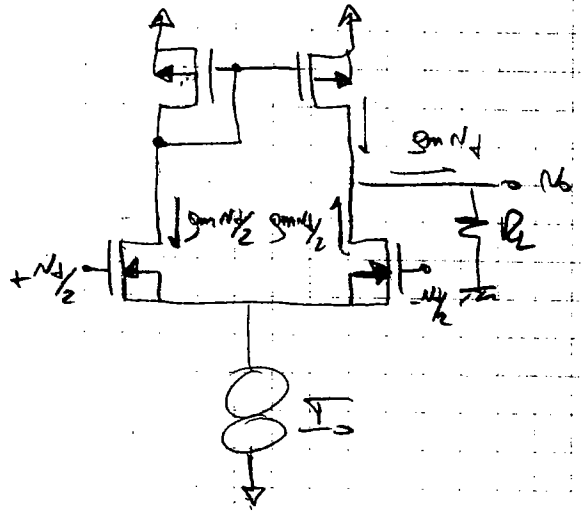 gm vd
vo
gm vd/2 gm vd/2
RL
+vd/2
-vd/2
Io